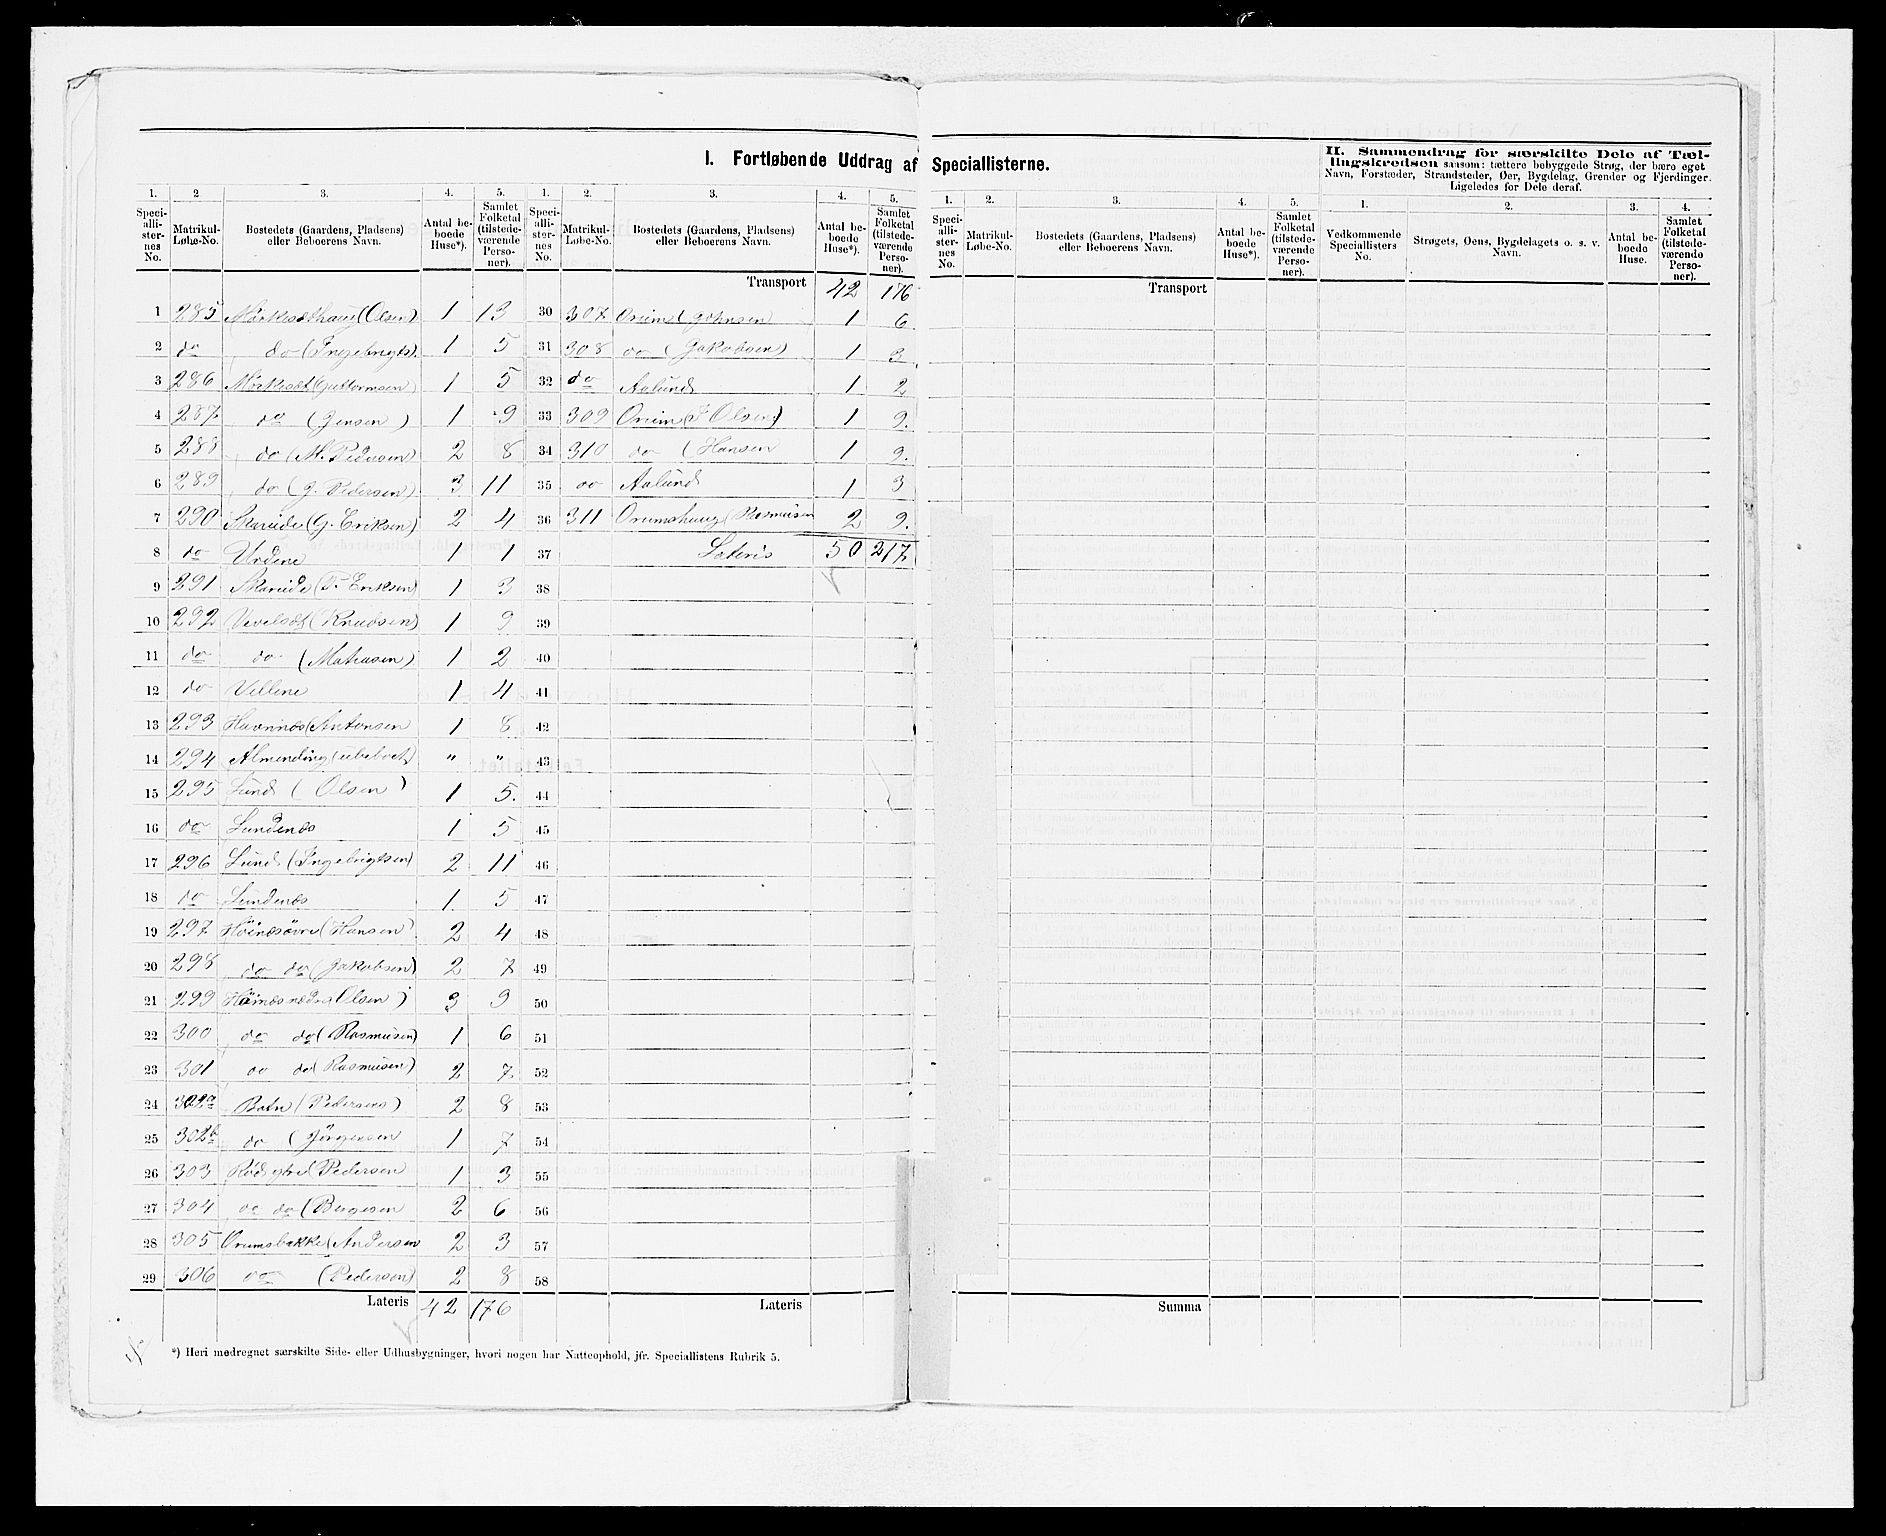 I. Fortløbende Uddrag af Speciallisterne.
II. Sammendrag for særskilte Dele af Tællingskredsen saasom: tættere bebyggede Strøg, der bære eget
Navn, Forstæder, Strandsteder, Øer, Bygdelag, Grender og Fjerdinger.
Ligeledes for Dele deraf.
1. 2 3. 4. 5. 1. 2. 3. 4. 5.
Speciallisternes No. Matrikul-Løbe-No. Bostedets (Gaardens, Pladsens) eller Beboerens Navn. Antal beboede Huse*). Samlet Folketal (tilstedeværende Personer). Speciallisternes No. Matrikul-Løbe-No. Bostedets (Gaardens, Pladsens) eller Beboerens Navn. Antal beboede Huse*). Samlet Folketal (tilstedeværende Personer).
Transport 42 176
1 285 Mörkesæthaug (Olsen) 1 13
2 do do (Ingebrigts). 1 5
3 286 Mörkesæt (Guttormsen) 1 5
4 287 do (Jensen) 1 9
5 288 do (M. Pedersen) 2 8
6 289 do (J. Pedersen) 3 11
7 290 Skareide (G. Eriksen) 2 4
8 do Urdene 1 1
9 291 Skareide (P. Eriksen) 1 3
10 292 Vevelsæt (Knudsen) 1 9
11 do do (Matiasen) 1 2
12 do Vellene 1 4
13 293 Havnnæs (Antonsen 1 8
14 294 Almending (ubeboet) " "
15 295 Lund (Olsen) 1 5.
16 do Lundenæs 1 5
17 296 Lund (Ingebrigtsen) 2 11
18 do Lundenæs 1. 5
19 297 Höinæsövre (Hansen) 2 4
20 298 do do (Jakobsen) 2 7
21 299 Höinæs nedre (Olsen) 3 9
22 300 do do (Rasmusen) 1 6
23 301 do do (Rasmusen) 2 7
24 302a Botn (Pedersens) 2 8
25 302b do (Jörgensen 1 7
26 303 Röd ytre (Pedersen 1 3
27 304 do do (Birgesen 2 6
28 305 Orumsbakke (Andersen 2 3
29 306 do (Pedersen) 2 8
Lateris 42 176
30 307 Orum (Johnsen 1 6
31 308 do (Jakobsen) 1 3
32 do Aalund 1 2
33 309 Orum (I Olsen) 1 9.
34 310 do (Hansen 1 9.
35 do Aalund 1 3
36 311 Orumshaug (Rasmusen 2 9.
37 Lateris 50 217
38
39
40
41
42
43
44
45
46
47
48
49
50
51
52
53
54
55
56
57
58
Lateris
*) Heri medregnet særskilte Side- eller Udhusbygninger, hvori nogen har Natteophold, jfr. Speciallistens Rubrik 5.
1. 2. 3. 4. 5. 1. 2. 3. 4.
Speciallisternes No. Matrikul-Løbe-No. Bostedets (Gaardens, Pladsens) eller Beboerens Navn. Antal beboede Huse*). Samlet Folketal (tilstedeværende Personer). Vedkommende Speciallisters No. Strøgets, Øens, Bygdelagets o. s. v. Navn. Antal beboede Huse. Samlet Folketal (tilstedeværende Personer).
Transport
Summa